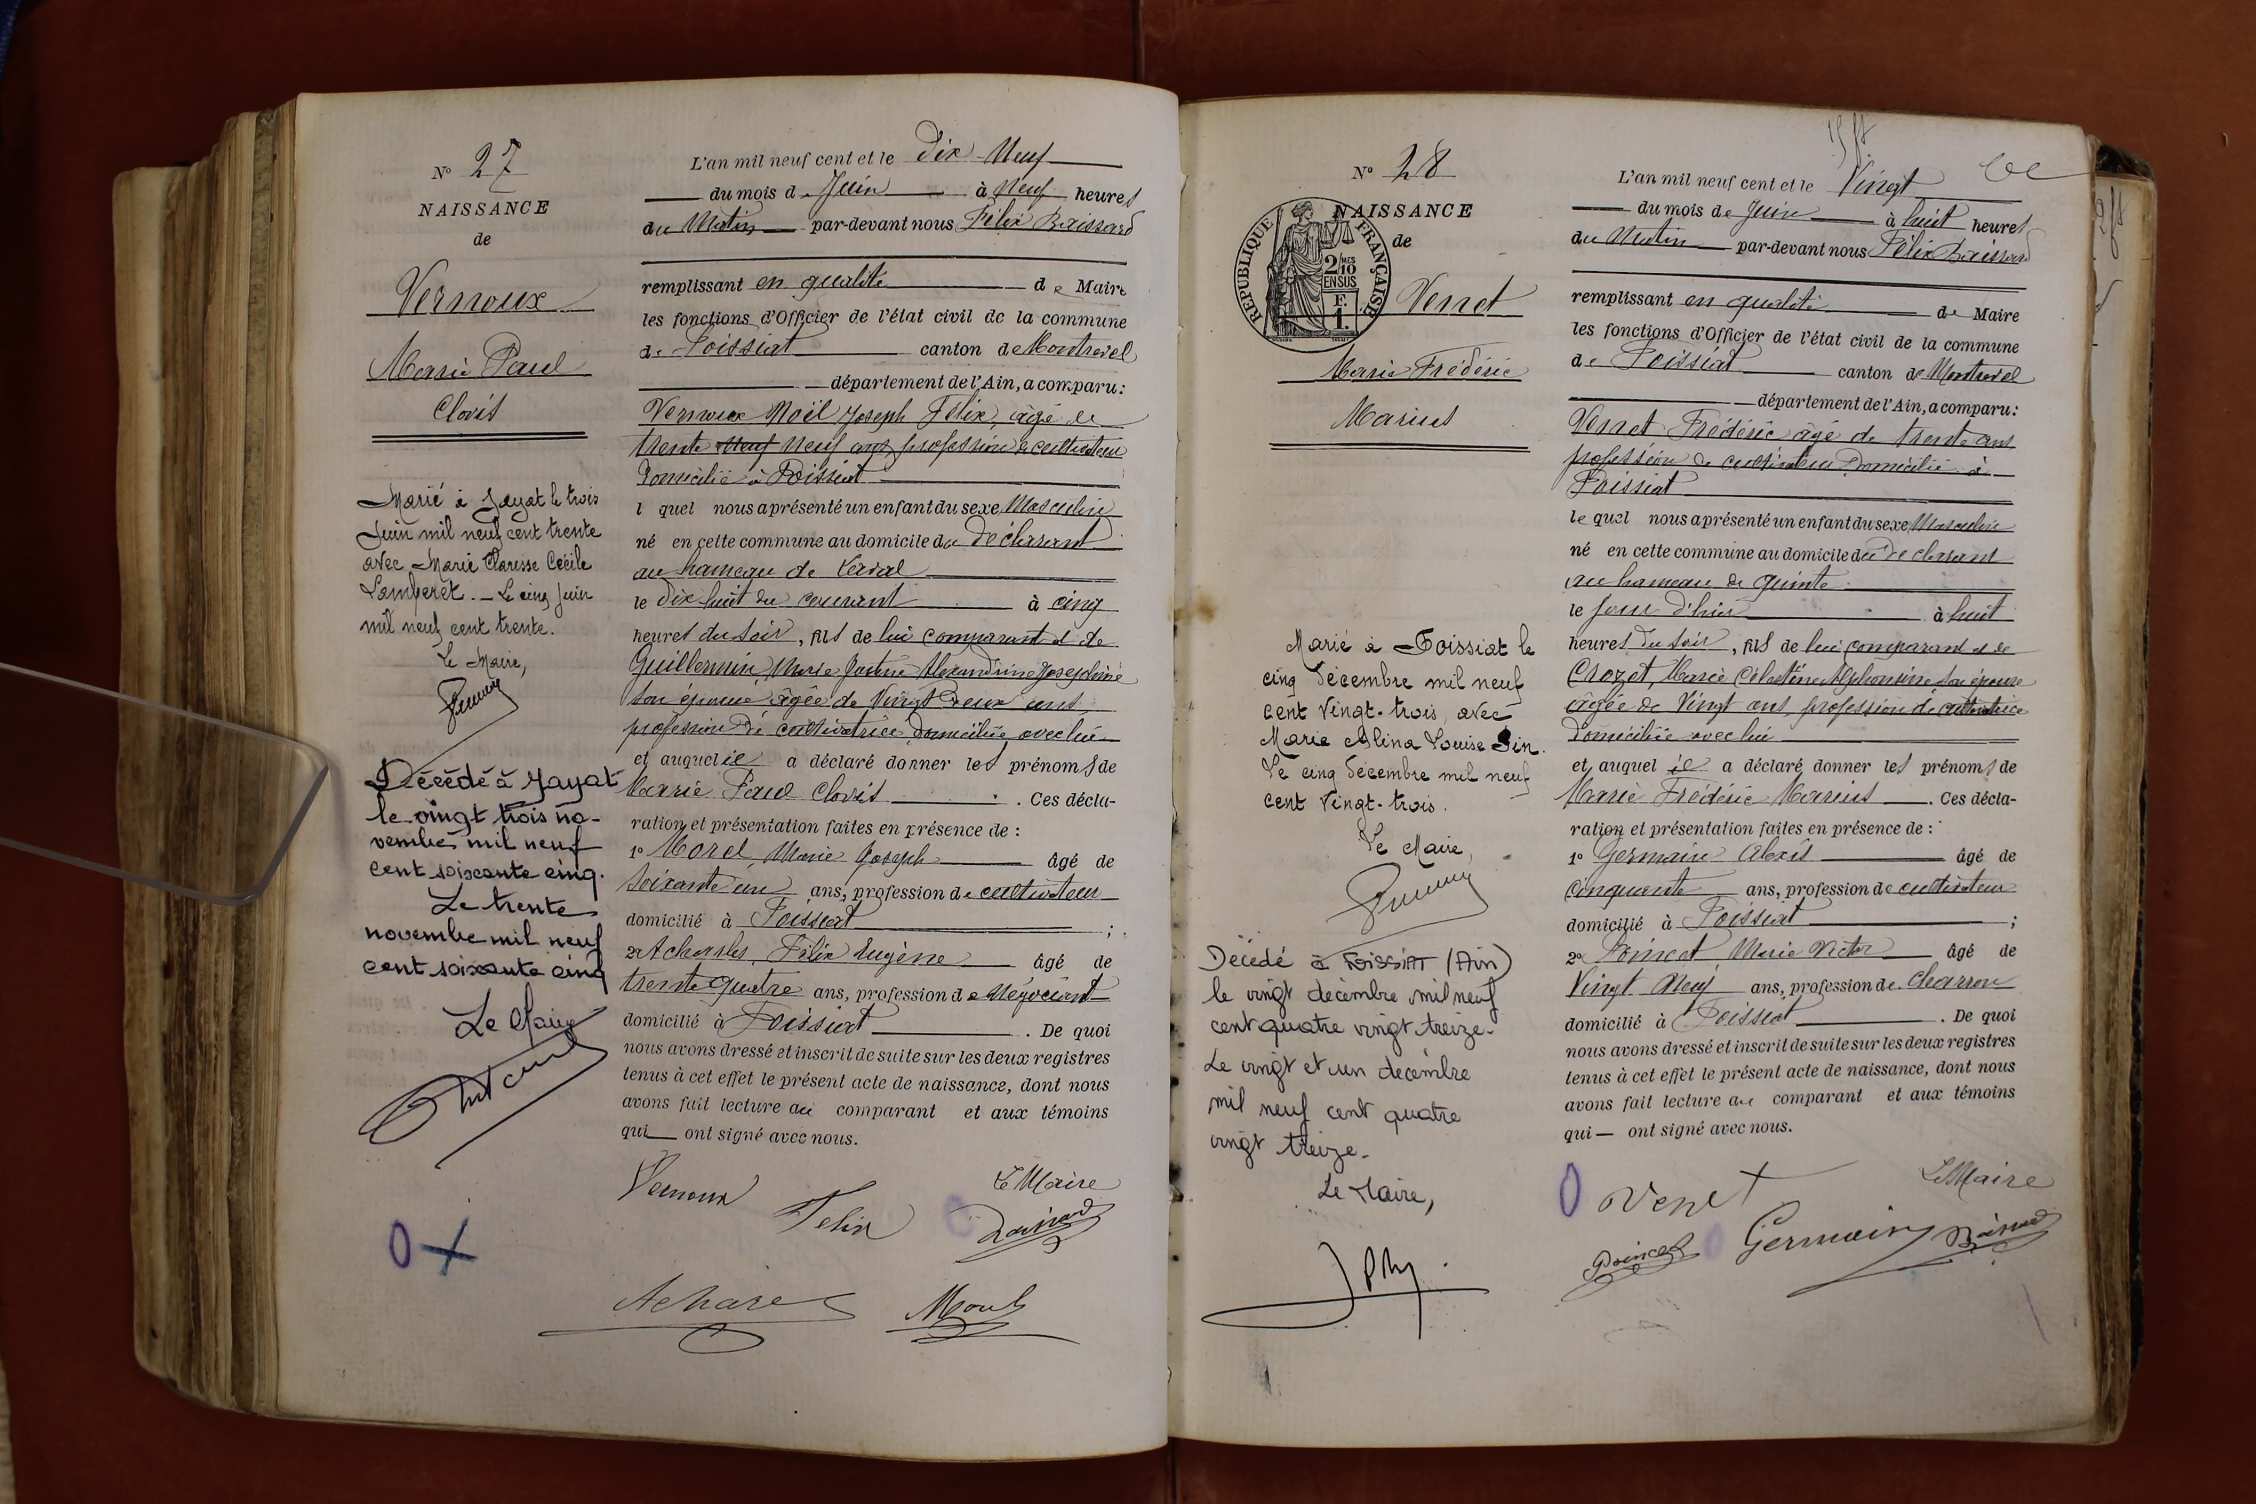 N° 27
NAISSANCE
de
Vernoux
Marie Paul
Clovis
Marié à Jayat le trois
Juin mil neuf cent trente
avec Marie Clarisse Cécile
Lamberet. — Le cinq Juin
mil neuf cent trente.
Le Maire,
Décédé à Jayat
le vingt trois no-
vembre mil neuf
cent soixante cinq.
Le trente
novembre mil neuf
cent soixante cinq
Le Maire
L'an mil neuf cent et le dix-Neuf
du mois d Juin à Neuf heures
du Matin par-devant nous Félix Baissard
remplissant en qualité de Maire
les fonctions d'Officier de l'état civil de la commune
de Foissiat canton de Montrevel
département de l'Ain, a comparu:
Vernoux Noël Joseph Félix, âgé de
trente Neuf Neuf ans profession de cultivateur
Domicilié à Foissiat
l quel nous a présenté un enfant du sexe Masculin
né en cette commune au domicile du déclarant
au hameau de
le dix huit du courant à cinq
heures du soir, fils de lui comparant et de
Guillermin Marie Alexandrine Joséphine
son épouse âgée de Vingt deux ans
profession de cultivatrice domiciliée avec lui
et auquel il a déclaré donner les prénoms de
Marie Paul Clovis . Ces décla-
ration et présentation faites en présence de :
1° Morel Marie Joseph âgé de
soixante un ans, profession de cultivateur
domicilié à Foissiat ;
2° Félix Eugène âgé de
trente quatre ans, profession de Négociant
domicilié à Foissiat . De quoi
nous avons dressé et inscrit de suite sur les deux registres
tenus à cet effet le présent acte de naissance, dont nous
avons fait lecture au comparant et aux témoins
qui ont signé avec nous.
Vernoux Félix
Le Maire
Baissard
Morel
N° 28
NAISSANCE
de
RÉPUBLIQUE FRANÇAISE
2/10 MES
EN SUS
F.
1.
Verret
Marie Frédéric
Marius
Marié à Foissiat le
cinq décembre mil neuf
cent vingt-trois, avec
Marie Alina Louise Sin.
Le cinq décembre mil neuf
cent vingt-trois.
Le Maire,
Décédé à FOISSIAT (Ain)
le vingt décembre mil neuf
cent quatre vingt treize.
Le vingt et un décembre
mil neuf cent quatre
vingt treize.
Le Maire,
L'an mil neuf cent et le Vingt
du mois de Juin à huit heures
du Matin par-devant nous Félix Baissard
remplissant en qualité de Maire
les fonctions d'Officier de l'état civil de la commune
de Foissiat canton de Montrevel
département de l'Ain, a comparu:
Verret Frédéric âgé de trente ans
profession de cultivateur Domicilié à
Foissiat
le quel nous a présenté un enfant du sexe Masculin
né en cette commune au domicile du déclarant
au hameau de quinte
le jour d'hier à huit
heures du soir, fils de lui comparant et de
Crozet, Marie Célestine Alphonsine son épouse
âgée de Vingt ans, profession de cultivatrice
domiciliée avec lui
et auquel il a déclaré donner les prénoms de
Marie Frédéric Marius . Ces décla-
ration et présentation faites en présence de :
1° Germain Alexis âgé de
Cinquante ans, profession de cultivateur
domicilié à Foissiat ;
2° Poincet Marie Victor âgé de
Vingt Neuf ans, profession de Charron
domicilié à Foissiat . De quoi
nous avons dressé et inscrit de suite sur les deux registres
tenus à cet effet le présent acte de naissance, dont nous
avons fait lecture au comparant et aux témoins
qui ont signé avec nous.
Le Maire
Veret
Germain
Baissard
Poincet